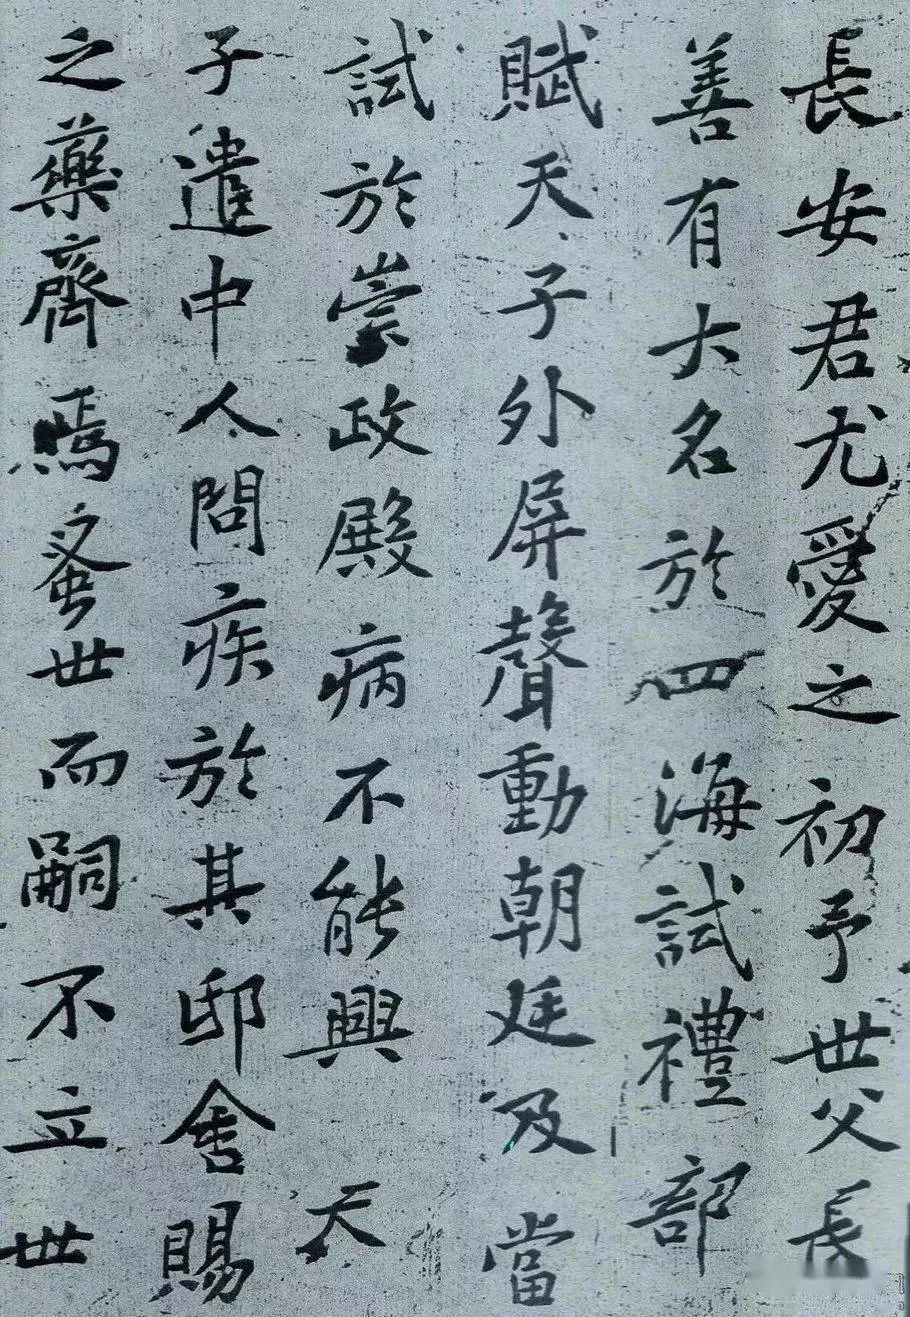 長安君尤愛之初予世父長
善有大名於四海試禮部
賦天子外屏聲動朝廷及當
試於崇政殿病不能興天
子遣中人問疾於其邸舍賜
之藥齊焉蚤世而嗣不立世